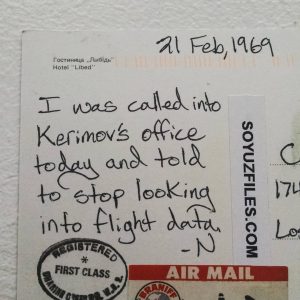 21 Feb, 1969
Гостиница „Либідь"
Hotel "Libed"
I was called into
Kerimov's office
today and told
to stop looking
into flight data.
-N
SOYUZFILES.COM
REGISTERED
FIRST CLASS
AIR MAIL
BRANIFF
C
174
Los